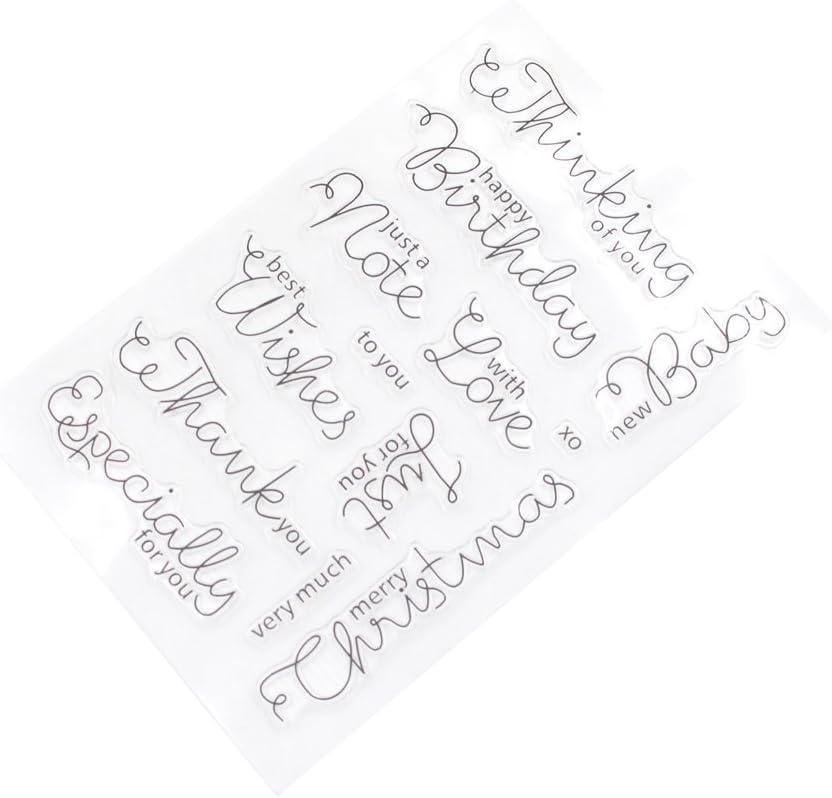 Thinking
of you
happy
Birthday
just a
Note
best
Wishes
to you
with
Love
new Baby
xo
Thank
you
Just
for you
Especially
for you
very much
merry
Christmas